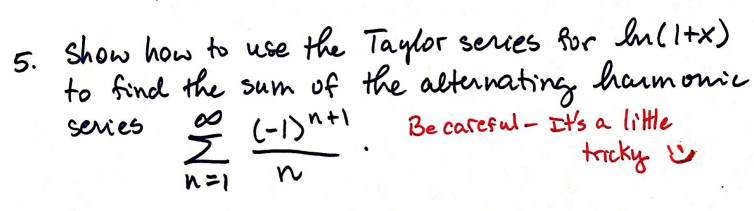 5. Show how to use the Taylor series for ln(1+x)
to find the sum of the alternating harmonic
series ∞ Σ n=1 (-1)^n+1 / n . Be careful - It's a little
tricky ☺